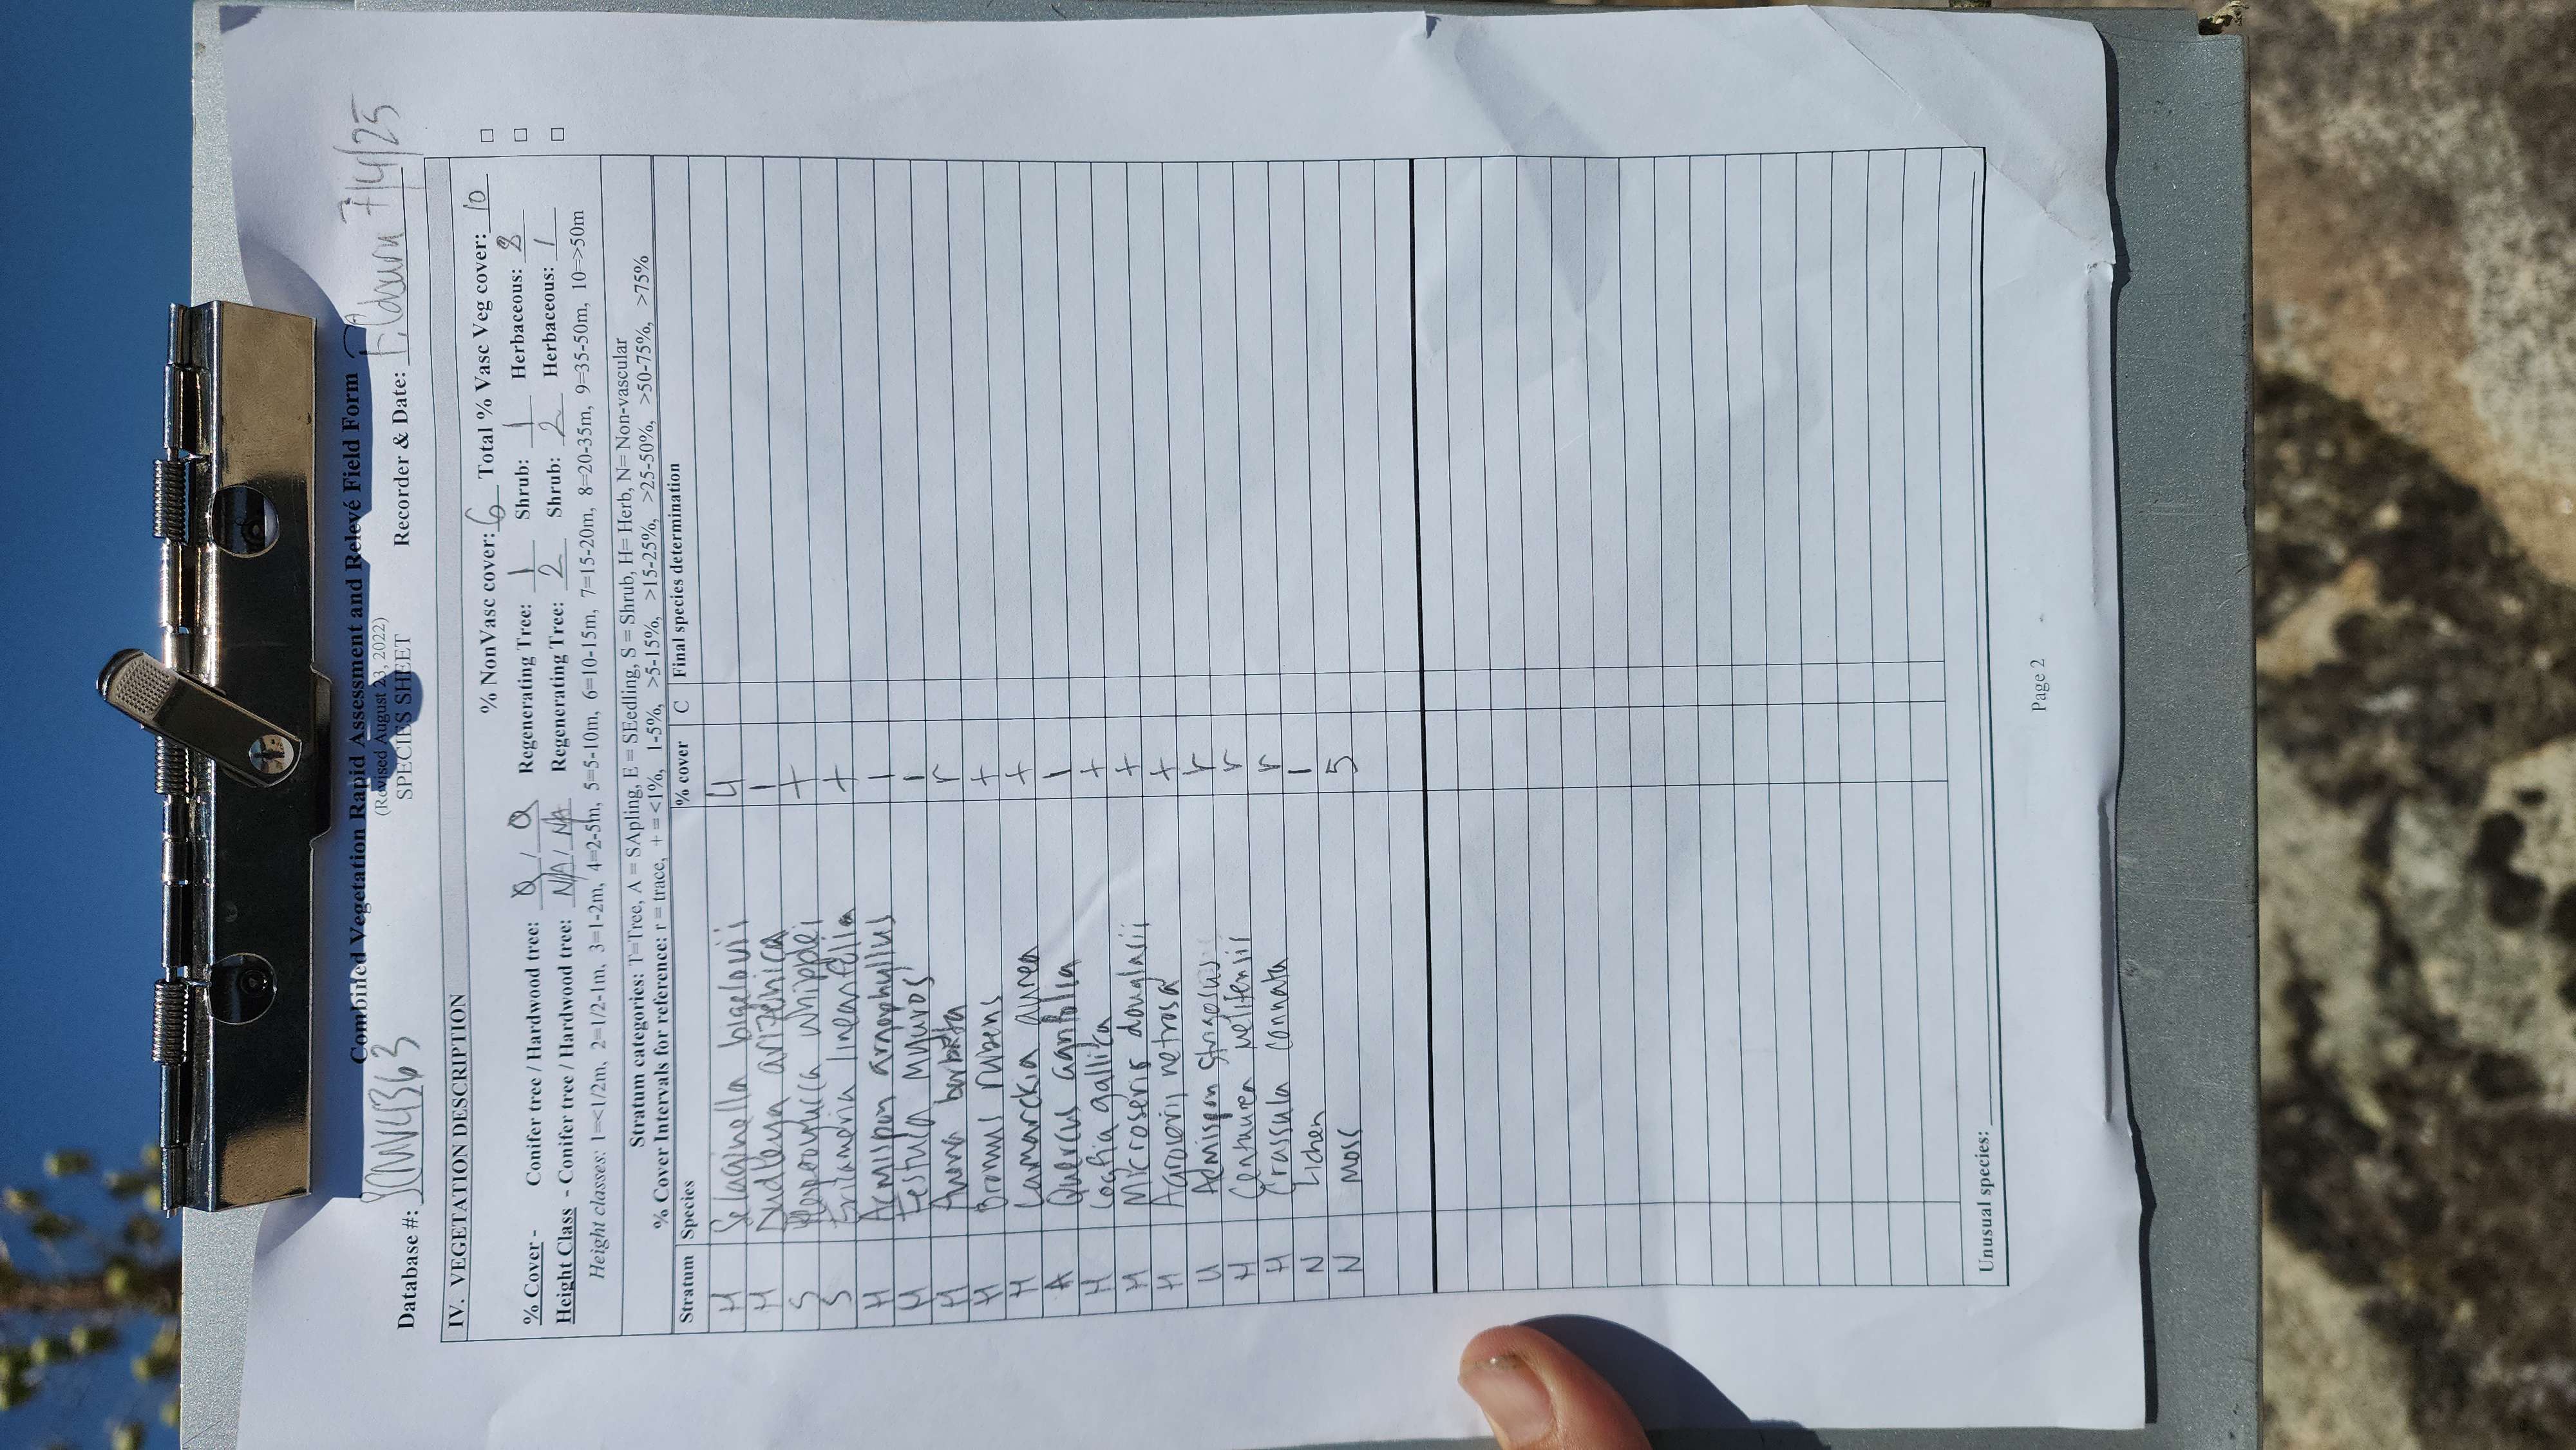 Combined Vegetation Rapid Assessment and Relevé Field Form
(Revised August 23, 2022)
Database #: SPECIES SHEET Recorder & Date: 7/4/25
IV. VEGETATION DESCRIPTION
% NonVasc cover: 6 Total % Vasc Veg cover: 10
% Cover - Conifer tree / Hardwood tree: 0 / 0 Regenerating Tree: 1 Shrub: 1 Herbaceous: 8
Height Class - Conifer tree / Hardwood tree: N/A / NA Regenerating Tree: 2 Shrub: 2 Herbaceous: 1
Height classes: 1=<1/2m, 2=1/2-1m, 3=1-2m, 4=2-5m, 5=5-10m, 6=10-15m, 7=15-20m, 8=20-35m, 9=35-50m, 10=>50m
Stratum categories: T=Tree, A = SApling, E = SEedling, S = Shrub, H= Herb, N= Non-vascular
% Cover Intervals for reference: r = trace, + = <1%, 1-5%, >5-15%, >15-25%, >25-50%, >50-75%, >75%
Stratum Species % cover C Final species determination
H Selaginella bigelovii 4
H Dudleya 1
S Hesperoyucca whipplei +
S Ericameria +
H Acmispon argophyllus 1
H Festuca myuros 1
H Avena barbata r
H Bromus rubens +
H Lamarckia aurea +
A Quercus agrifolia 1
H Logfia gallica +
H Microseris douglasii +
H +
H Acmispon strigosus r
H Centaurea melitensis r
H Crassula connata r
N Lichen 1
N Moss 5
Unusual species:
Page 2